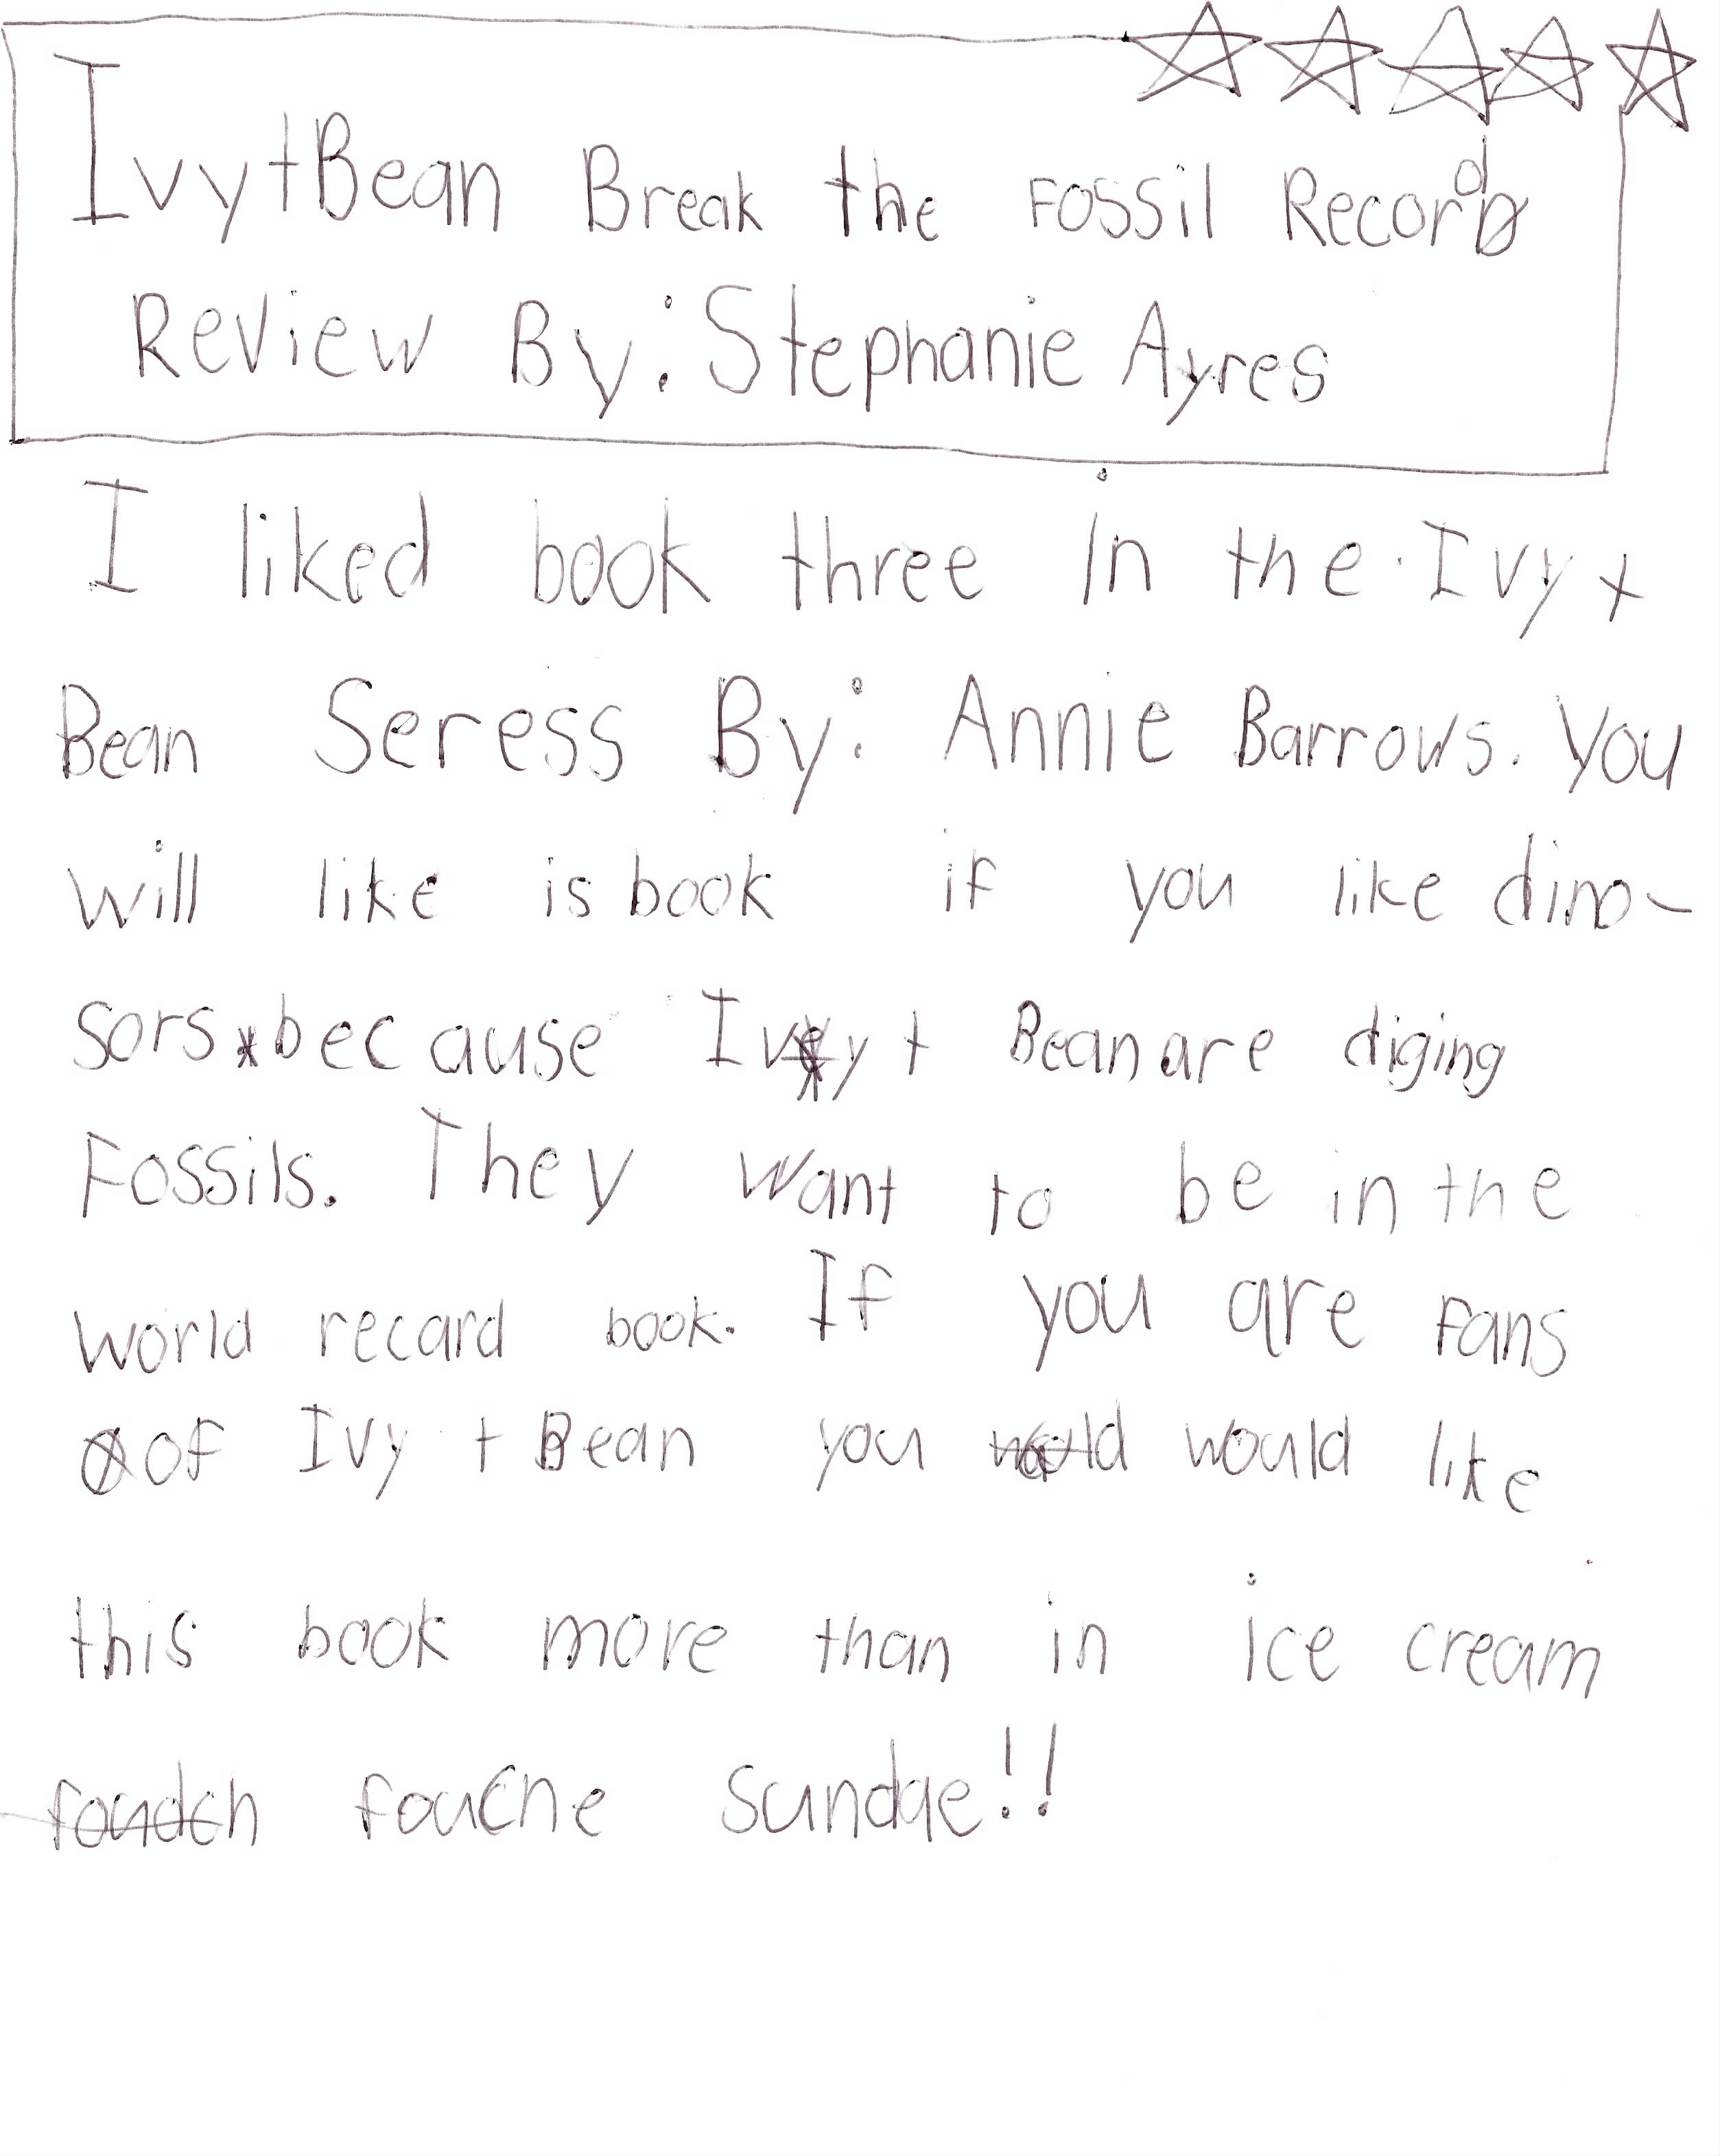 Ivy+Bean Break the Fossil Record
Review By: Stephanie Ayres
I liked book three in the Ivy +
Bean Seress By: Annie Barrows. You
will like is book if you like dino-
sors because Ivy + Bean are diging
Fossils. They want to be in the
world recard book. If you are Fans
of Ivy + Bean you would would like
this book more than in ice cream
foudch fouche Sundae!!